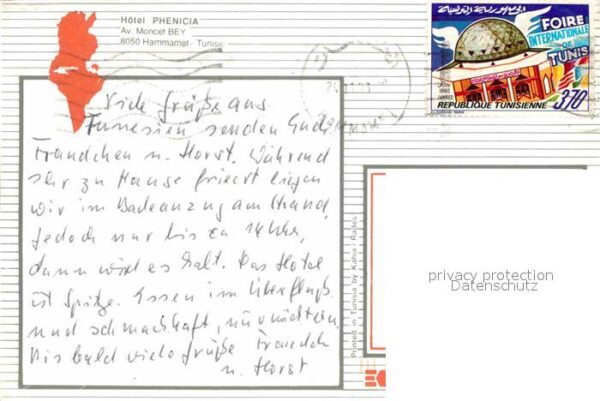 Hôtel PHENICIA
Av. Moncet BEY
8050 Hammamet Tunisie
الجمهورية التونسية
FOIRE
INTERNATIONALE
DE
TUNIS
REPUBLIQUE TUNISIENNE
370
Viele Grüße aus
Tunesien senden Euch
Traudchen u. Horst. Während
Ihr zu Hause friert liegen
wir im Badeanzug am Strand,
jedoch nur bis ca 14 Uhr,
dann wird es kalt. Das Hotel
ist Spitze. Essen im Überfluß
und schmackhaft,
Bis bald viele Grüße
u. Horst
Printed in Tunisia by Kahia / Rades
privacy protection
Datenschutz